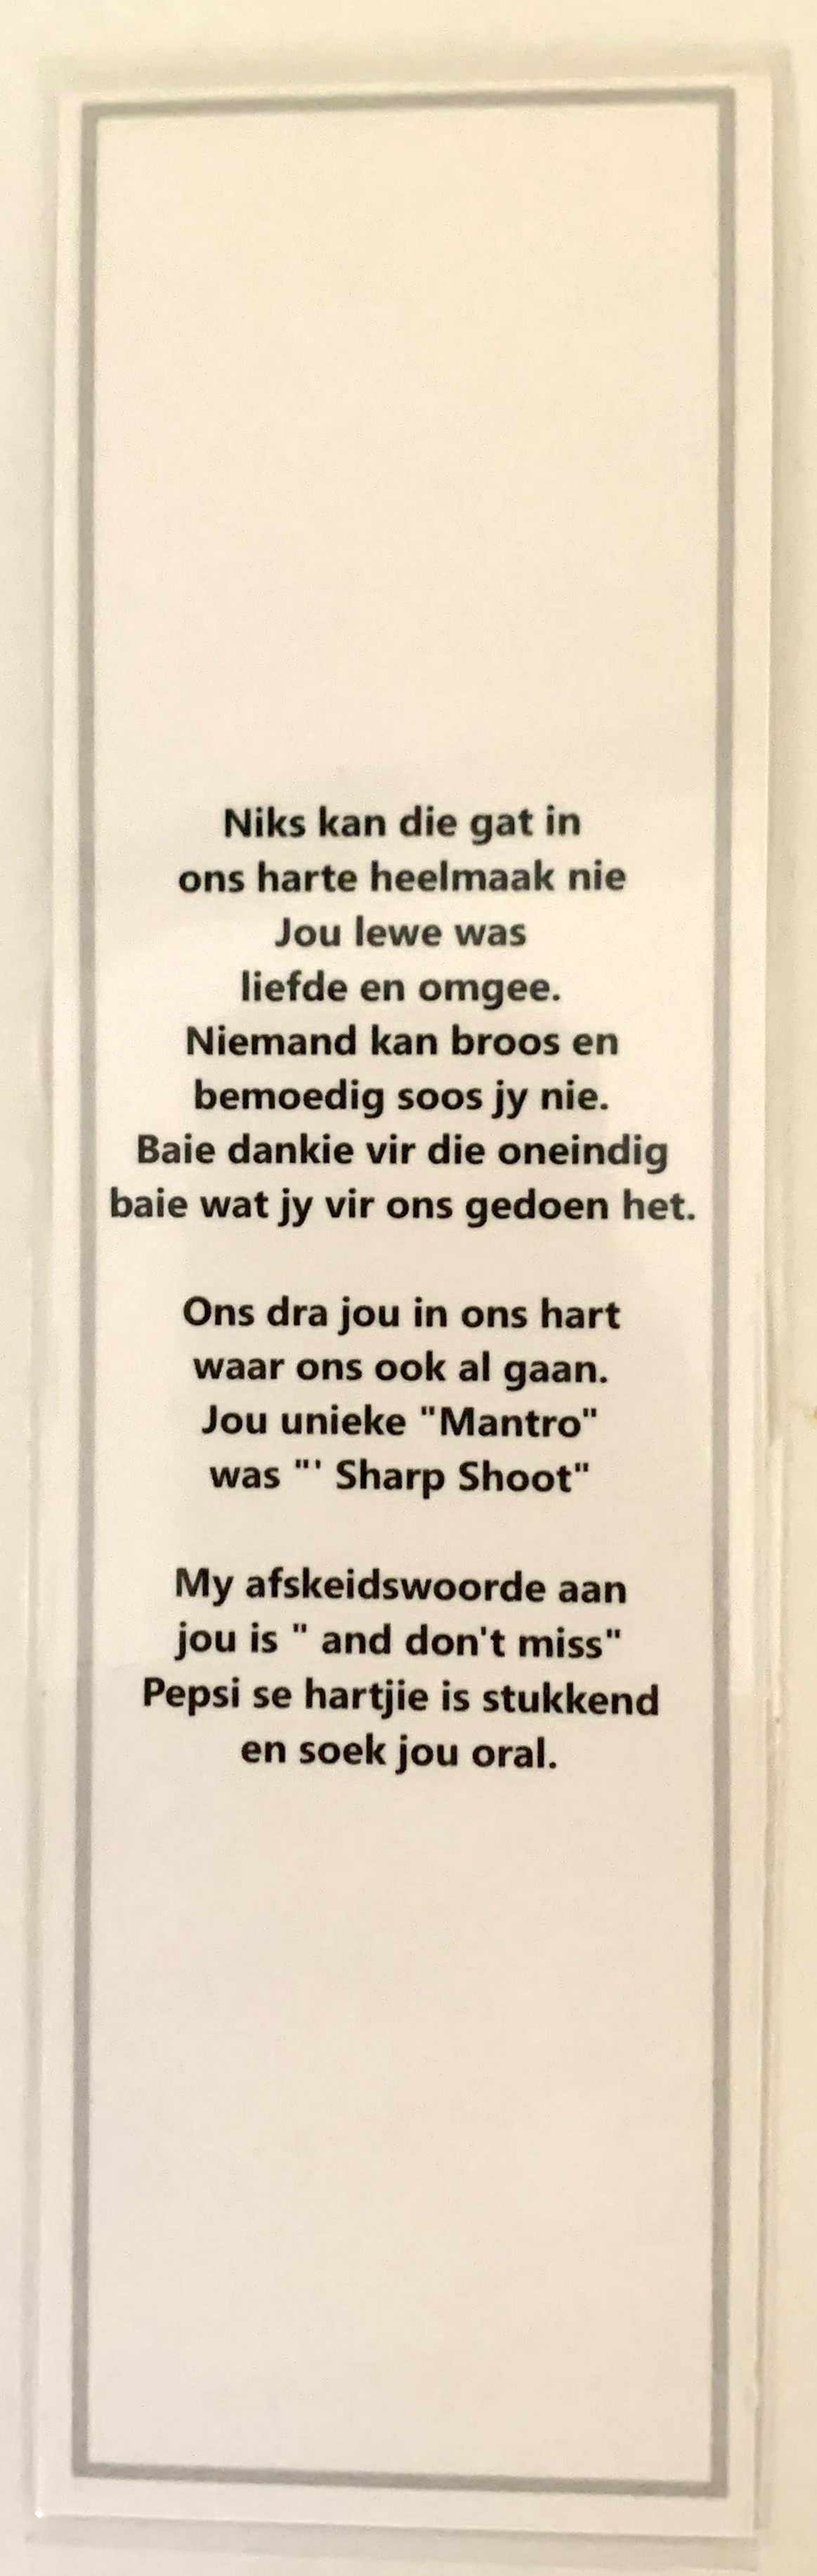 Niks kan die gat in
ons harte heelmaak nie
Jou lewe was
liefde en omgee.
Niemand kan broos en
bemoedig soos jy nie.
Baie dankie vir die oneindig
baie wat jy vir ons gedoen het.
Ons dra jou in ons hart
waar ons ook al gaan.
Jou unieke "Mantro"
was "' Sharp Shoot"
My afskeidswoorde aan
jou is " and don't miss"
Pepsi se hartjie is stukkend
en soek jou oral.